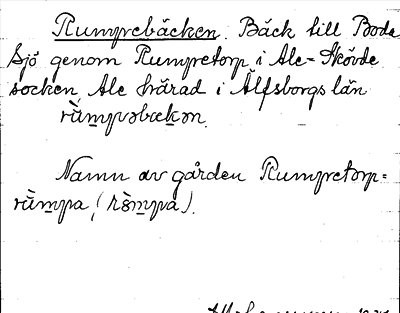 Rumprebäcken. Bäck till Boda
Sjö genom Rumpretorp i Ale-Skövde
socken Ale härad i Älfsborgs län
rùm̥prəbækən.
Namn av gården Rumpretorp=
rùm̥pa, (rò̤m̥pa).